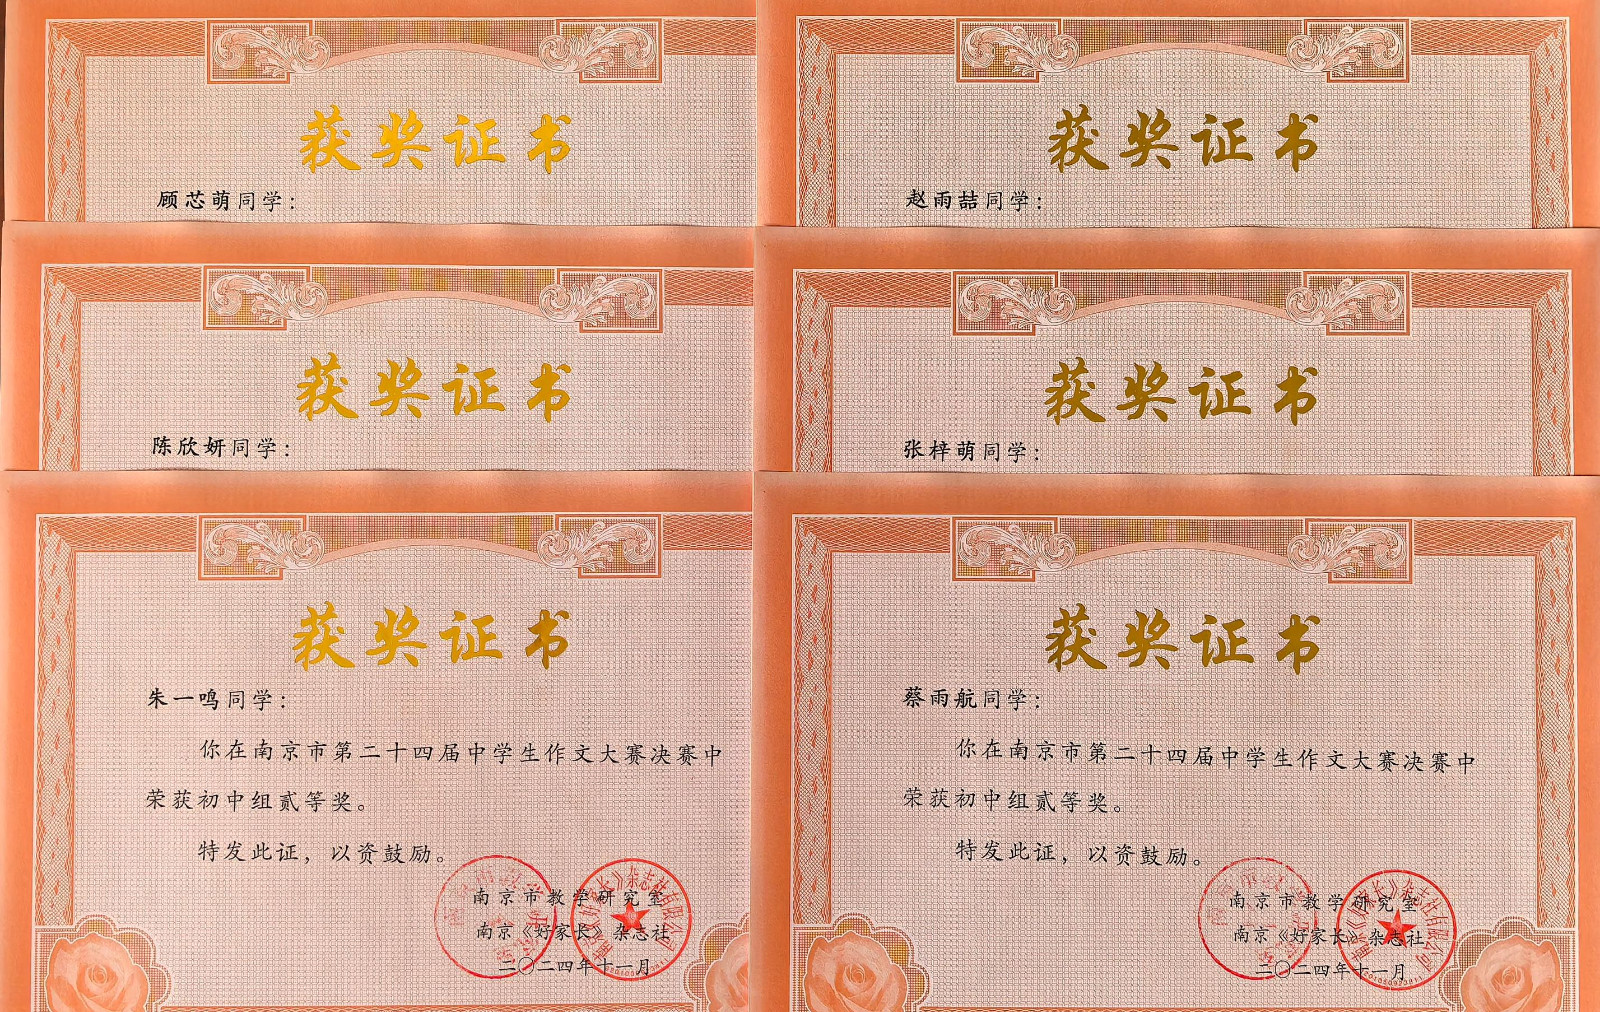 获奖证书
顾芯萌同学：
获奖证书
赵雨喆同学：
获奖证书
陈欣妍同学：
获奖证书
张梓萌同学：
获奖证书
朱一鸣同学：
你在南京市第二十四届中学生作文大赛决赛中
荣获初中组贰等奖。
特发此证，以资鼓励。
南京市教学研究室
南京《好家长》杂志社
二〇二四年十一月
获奖证书
蔡雨航同学：
你在南京市第二十四届中学生作文大赛决赛中
荣获初中组贰等奖。
特发此证，以资鼓励。
南京市教学研究室
南京《好家长》杂志社
二〇二四年十一月